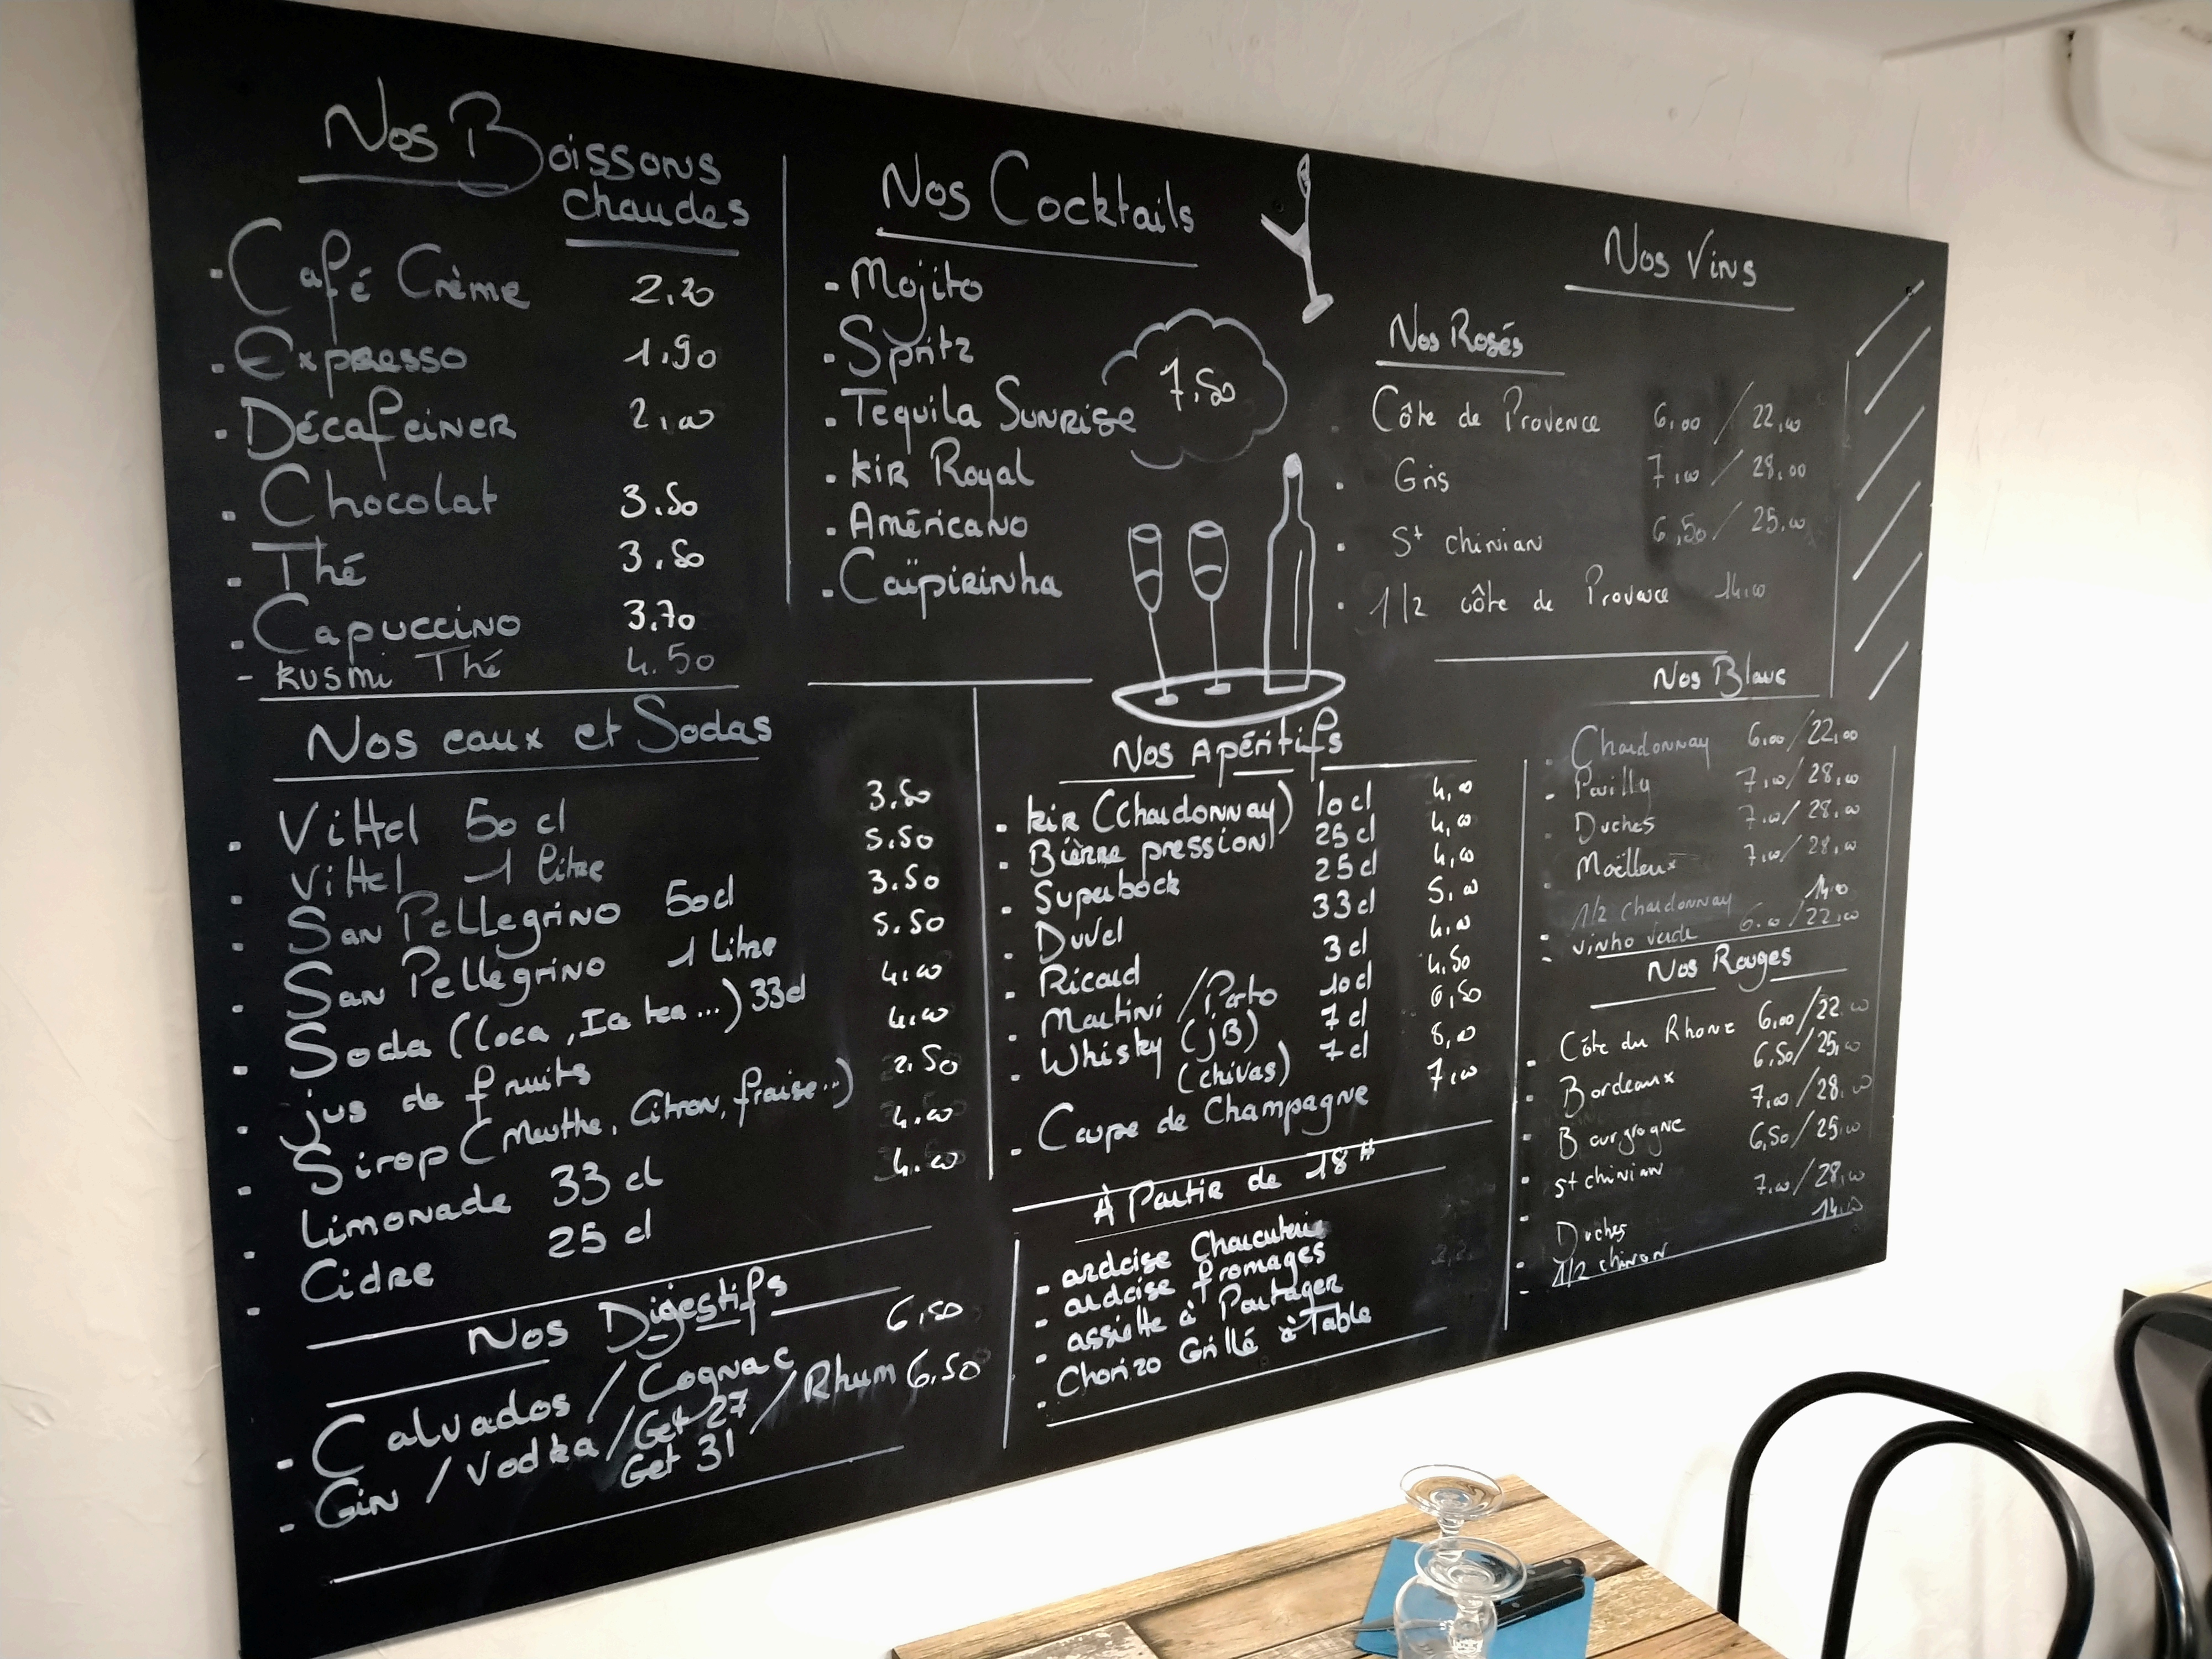 Nos Boissons
chaudes
- Café Crème 2.20
- Expresso 1.90
- Décafeiner 2,00
- Chocolat 3.50
- Thé 3.50
- Capuccino 3.70
- Kusmi Thé 4.50
Nos Cocktails
- Mojito
- Spritz
- Tequila Sunrise
- Kir Royal
- Américano
- Caïpirinha
7,50
Nos Vins
Nos Rosés
- Côte de Provence 6,00 / 22,00
- Gris 7,00 / 28,00
- St chinian 6,50 / 25,00
- 1/2 côte de Provence 14,00
Nos Blanc
- Chardonnay 6,00 / 22,00
- Pouilly 7,00 / 28,00
- Duches 7,00 / 28,00
- Moëlleux 7,00 / 28,00
- 1/2 Chardonnay 14,00
- vinho verde 6.00 / 22,00
Nos Rouges
- Côte du Rhone 6,00 / 22,00
- Bordeaux 6,50 / 25,00
- Bourgogne 7,00 / 28,00
- St chinian 6,50 / 25,00
- Duches 7,00 / 28,00
- 1/2 chinon 14,00
Nos eaux et Sodas
- Vittel 50 cl 3.50
- Vittel 1 litre 5.50
- San Pellegrino 50cl 3.50
- San Pellegrino 1 Litre 5.50
- Soda (Coca, Ice tea...) 33cl 4.00
- jus de fruits 4.00
- Sirop (Menthe, Citron, fraise...) 2.50
- Limonade 33 cl 4.00
- Cidre 25 cl 4.00
Nos Apéritifs
- Kir (Chardonnay) 10cl 4,00
- Bière pression 25cl 4,00
- Superbock 25cl 4,00
- Duvel 33cl 5,00
- Ricard 3cl 4,00
- Martini / Porto 10cl 4,50
- Whisky (JB) 7cl 6,50
(chivas) 7cl 8,00
- Coupe de Champagne 7,00
À Partir de 18H
- ardoise Charcuterie
- ardoise fromages
- assiette à Partager
- Chorizo Grillé à Table
Nos Digestifs
- Calvados / Cognac 6,50
- Gin / Vodka / Get 27 / Rhum 6.50
Get 31